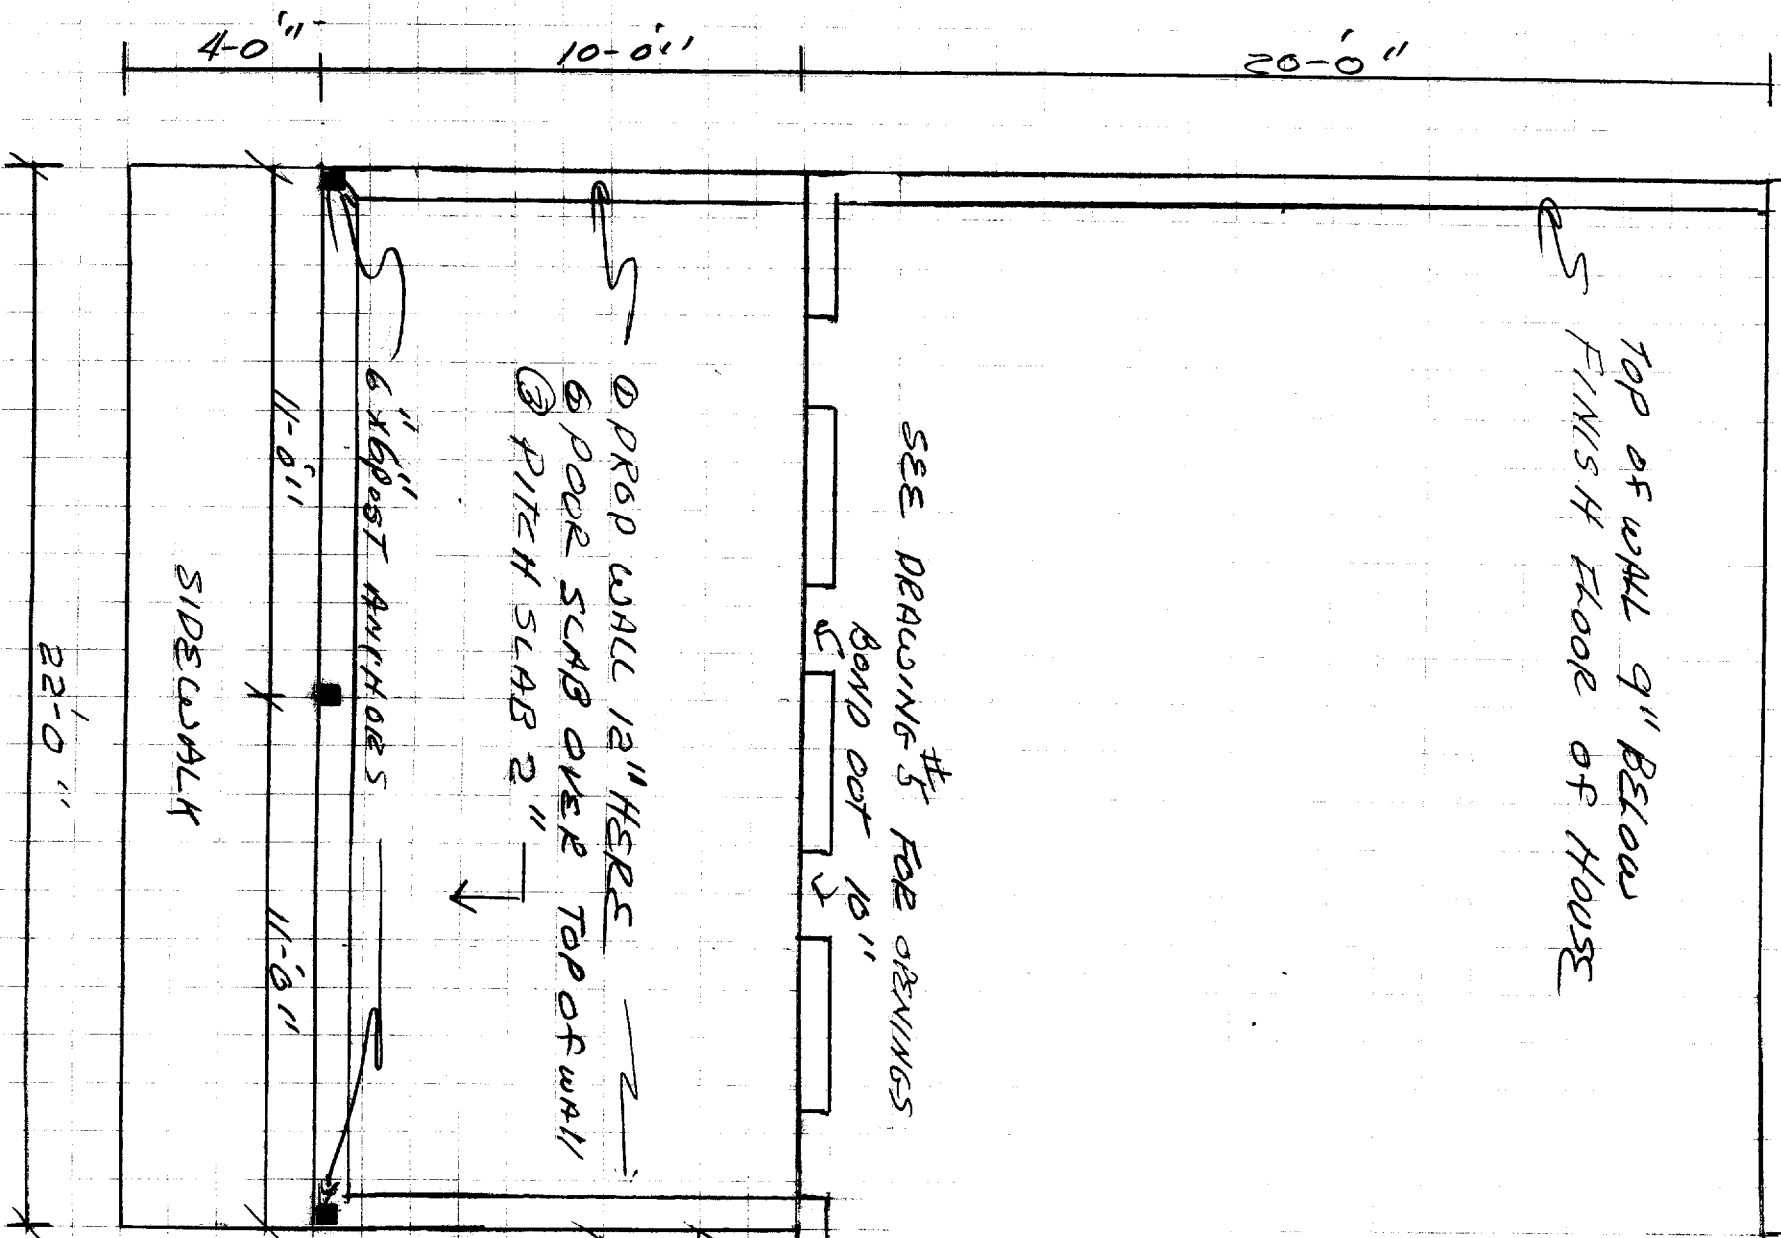 4'-0"
10'-0"
20'-0"
TOP OF WALL 9" BELOW
FINISH FLOOR OF HOUSE
SEE DRAWING #5 FOR OPENINGS
BOND OUT 10"
① DROP WALL 12" HERE
POOR SLAB OVER TOP OF WALL
③ PITCH SLAB 2"
6"x6" POST ANCHORS
11'-0"
11'-0"
SIDEWALK
22'-0"